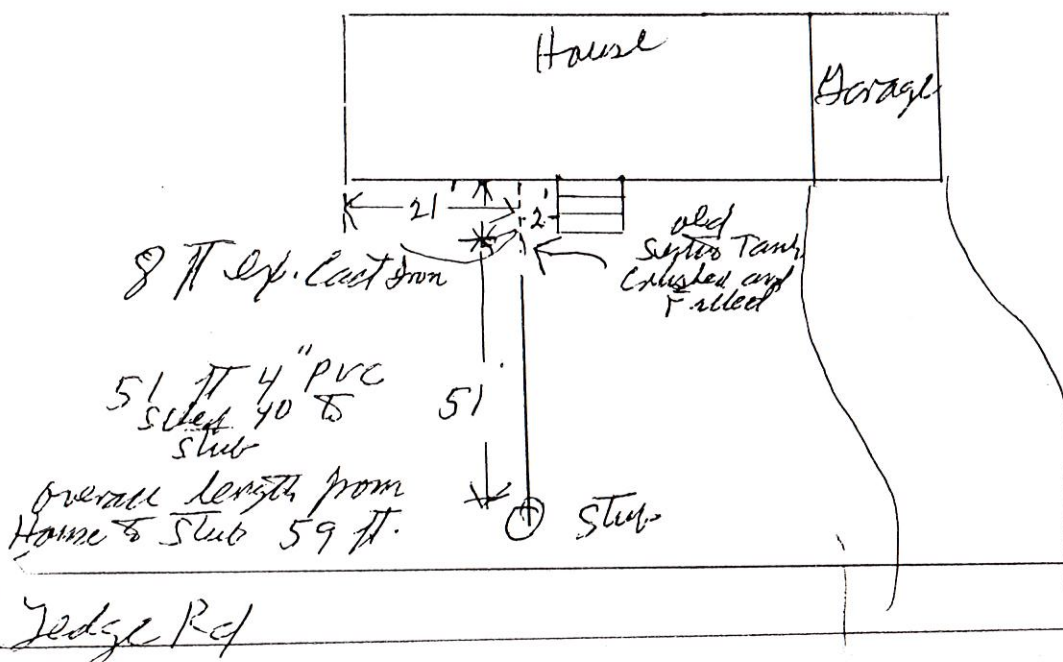 House
Garage
21'
2'
old
Septic Tank
Crushed and
Filled
8 ft ex. Cast Iron
51 ft 4" PVC
Sched 40 to
stub
51'
overall length from
House to Stub 59 ft.
Stub
Rd